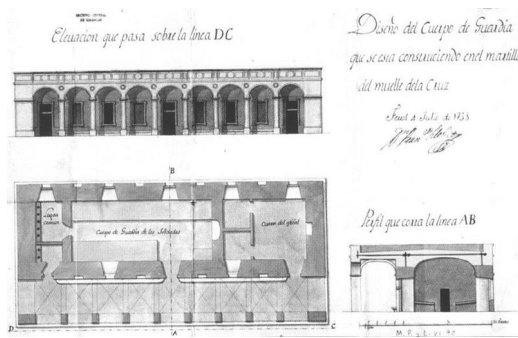 ARCHIVO GENERAL
DE SIMANCAS
Elevacion que pasa sobre la linea DC
Diseño del Cuerpo de Guardia
que se esta construciendo en el martillo
del muelle de la Cruz
Julio de 1758
B
Lugar
Comun
Cuerpo de Guardia de los Soldados
Cuarto del oficial
D
A
C
Perfil que corta la linea AB